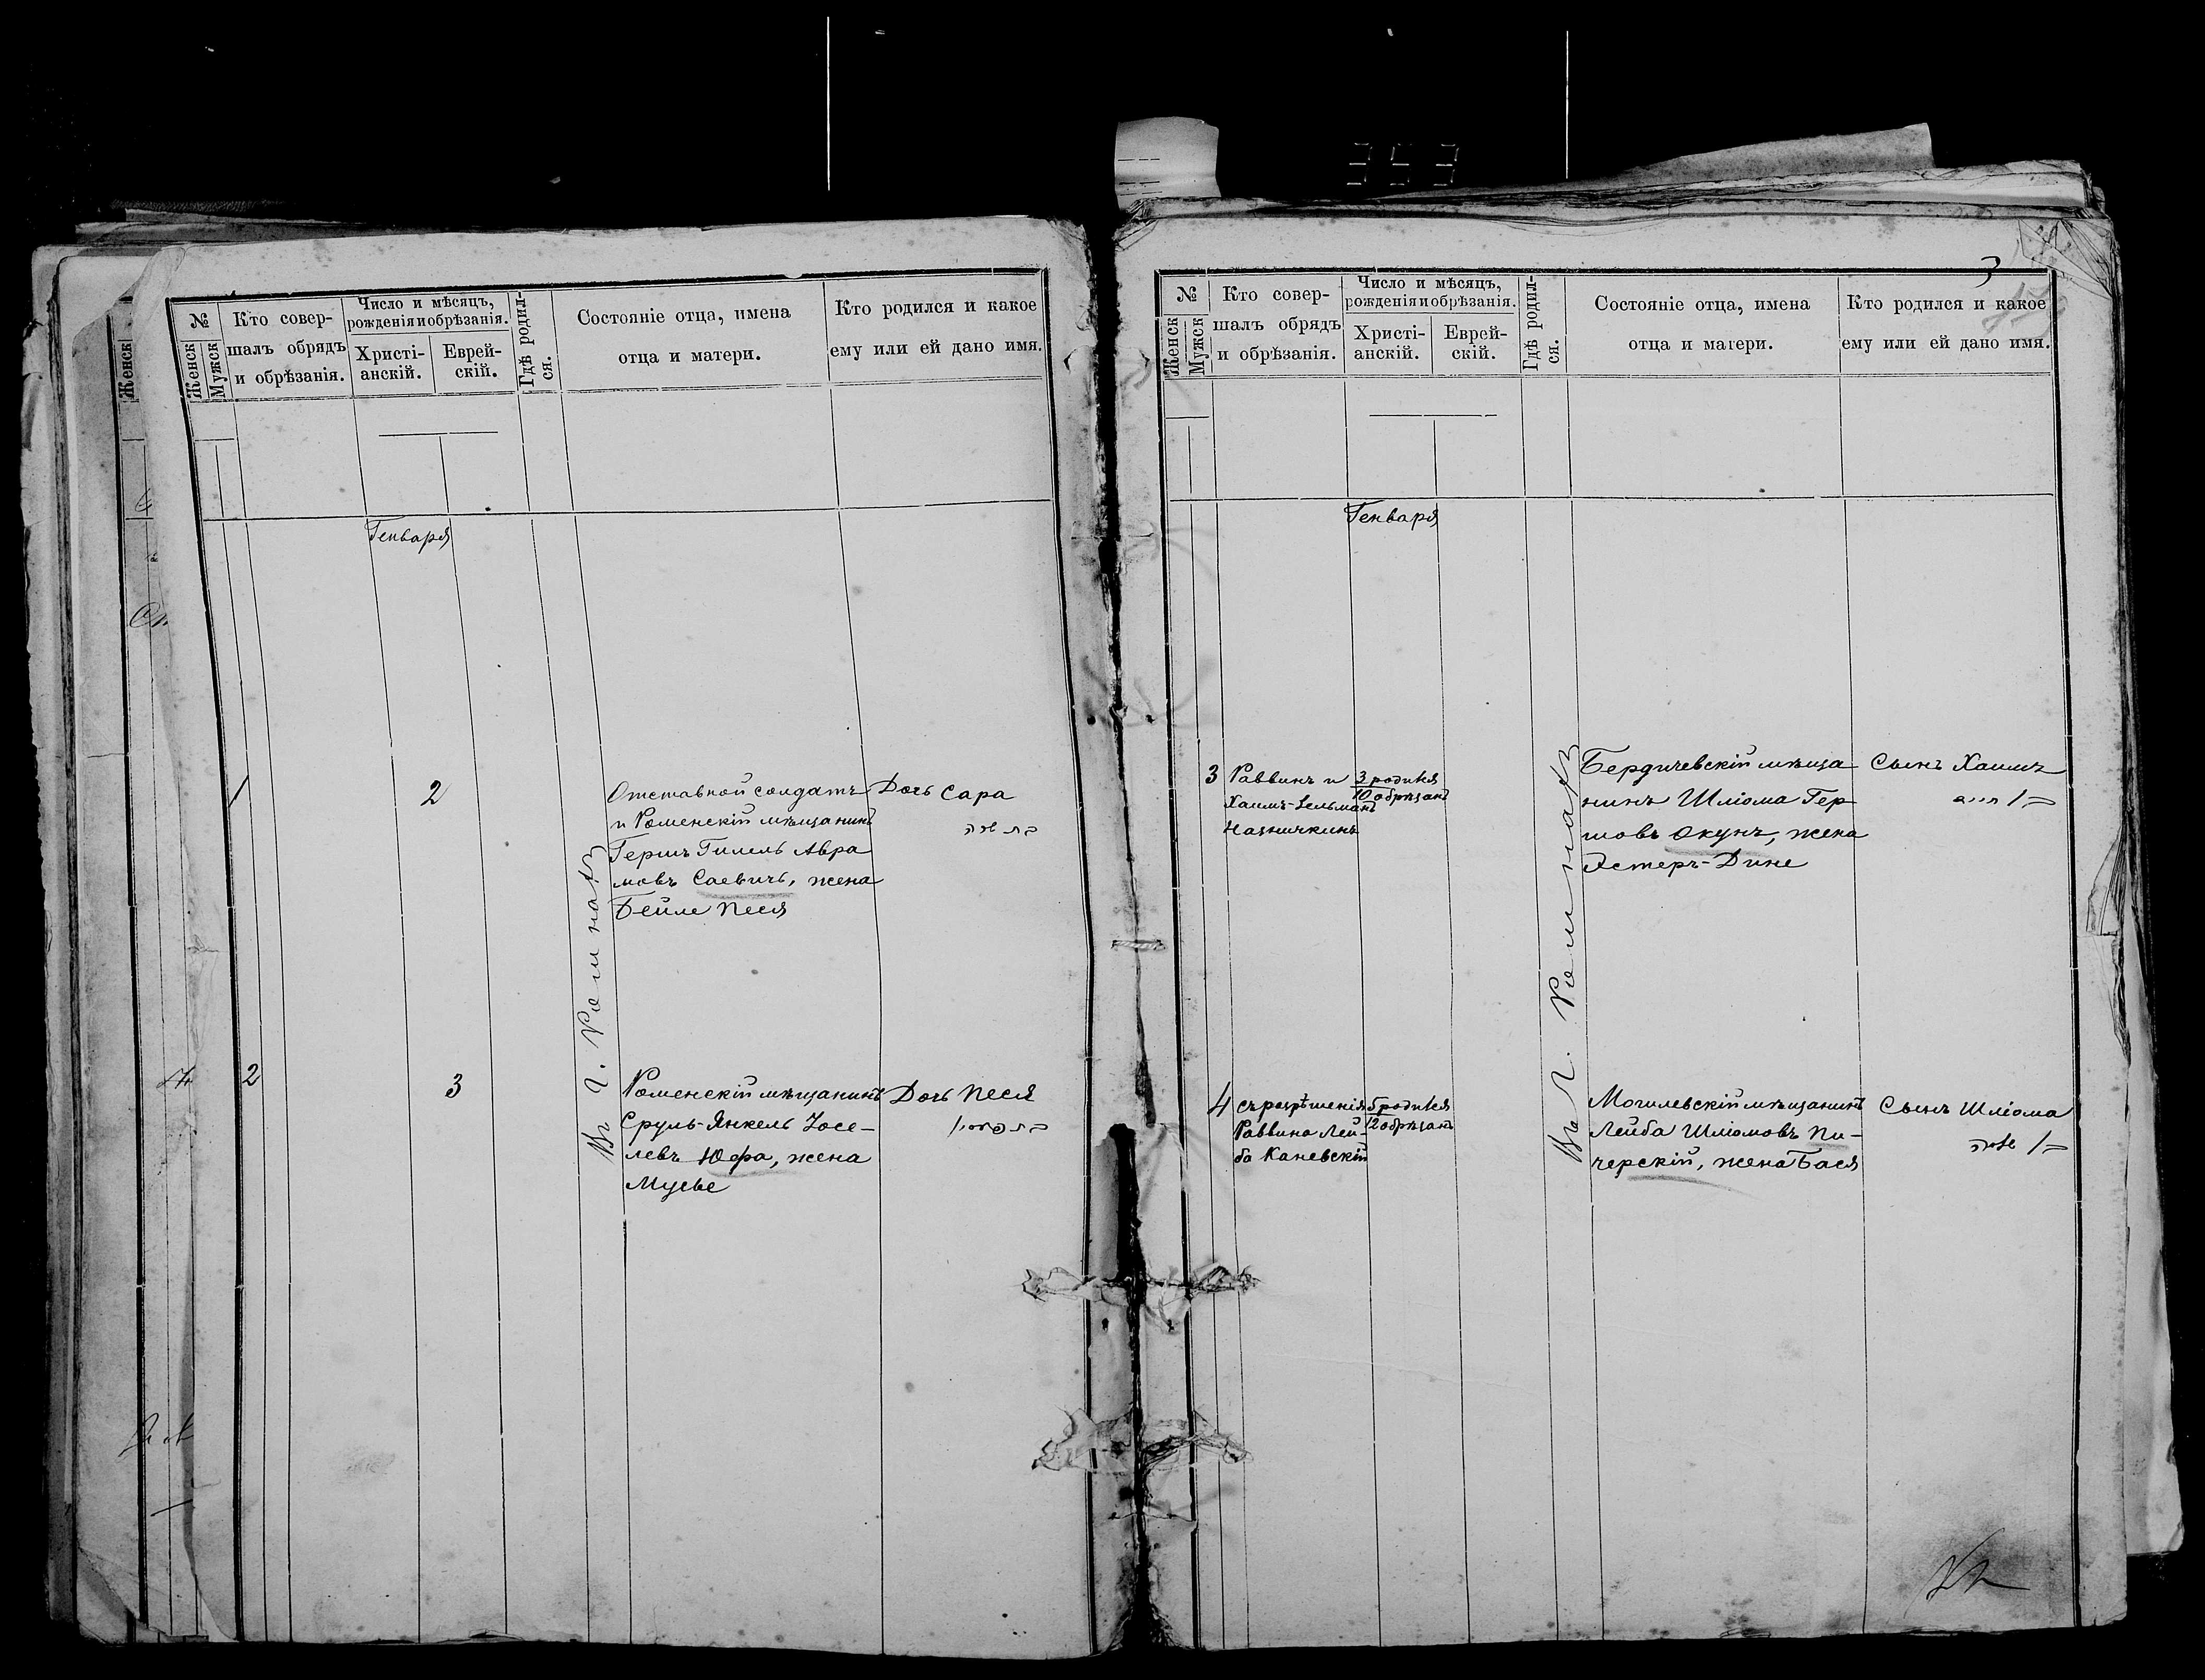 353
№
Женск
Мужск
Кто совер-
шалъ обрядъ
и обрѣзанія.
Число и мѣсяцъ,
рожденія и обрѣзанія.
Христі-
анскій.
Еврей-
скій.
Гдѣ родил-
ся.
Состояніе отца, имена
отца и матери.
Кто родился и какое
ему или ей дано имя.
Генваря
1
2
Отставной солдатъ
и Роменскій мѣщанинъ
Гершъ Гилель Авра
мовъ Саевичъ, жена
Бейле Песя
Дочь Сара
בת שרה
Въ г. Ромнахъ
2
3
Роменскій мѣщанинъ
Сруль-Янкель Іосе-
левъ Юфа, жена
Мусье
Дочь Песя
Женск
3
№
Женск
Мужск
Кто совер-
шалъ обрядъ
и обрѣзанія.
Число и мѣсяцъ,
рожденія и обрѣзанія.
Христі-
анскій.
Еврей-
скій.
Гдѣ родил-
ся.
Состояніе отца, имена
отца и матери.
Кто родился и какое
ему или ей дано имя.
Генваря
3
Раввинъ и
Хаимъ-Зельманъ
Назничкинъ
3 родился
10 обрѣзанъ
Бердичевскій мѣща
нинъ Шліома Гер
шовъ Окунъ, жена
Эстеръ-Дине
Сынъ Хаимъ
בן חיים
Въ г. Ромнахъ
4
съ разрѣшенія
Раввина Лей-
ба Каневскій
5 родился
12 обрѣзанъ
Могилевскій мѣщанинъ
Лейба Шліомовъ Пи-
черскій, жена Бася
Сынъ Шліома
בן שלמה